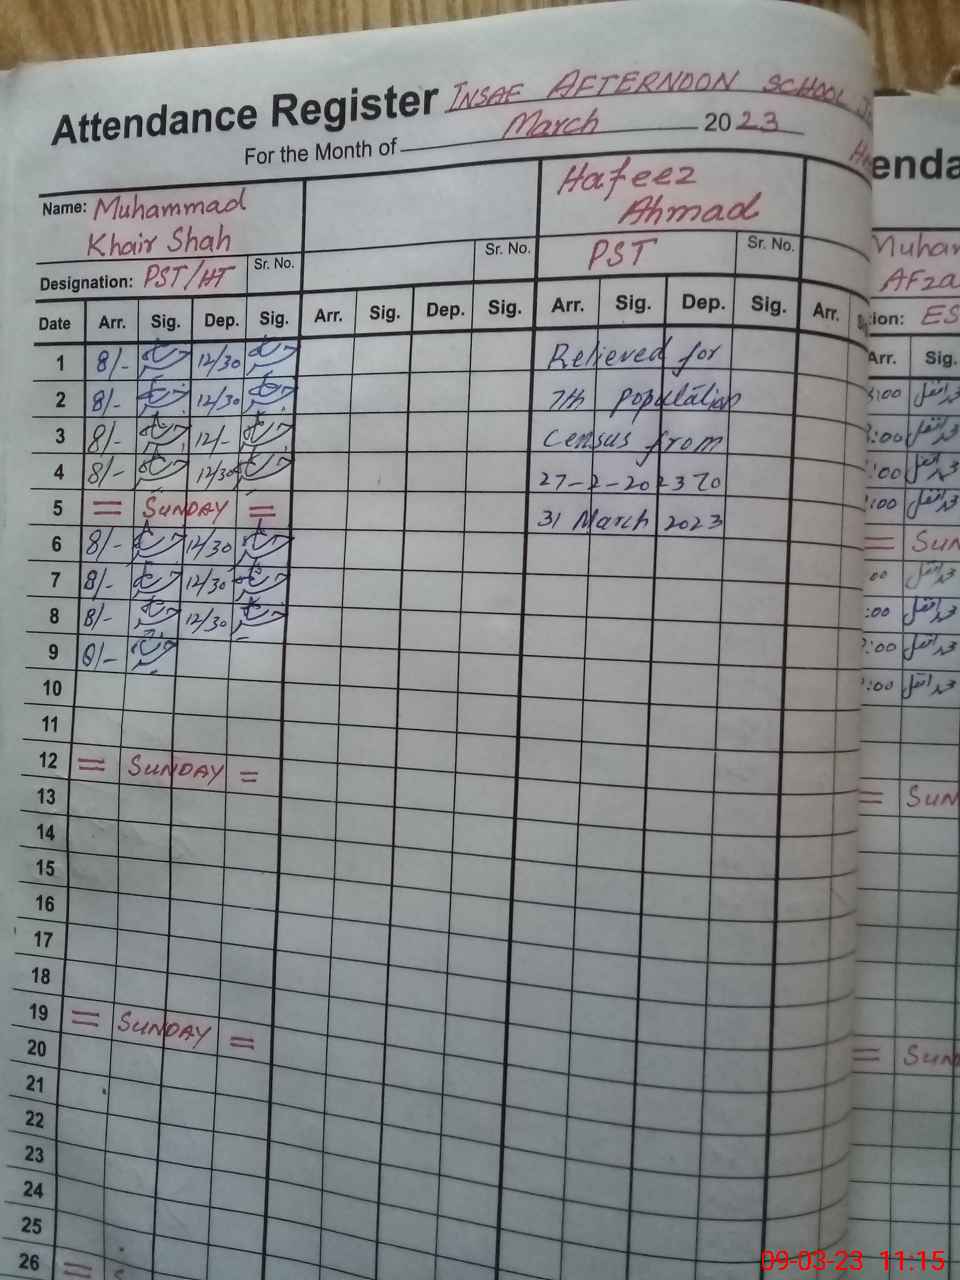 Attendance Register INSAF AFTERNOON SCHOOL
For the Month of March 2023
Name: Muhammad Khair Shah
Hafeez Ahmad
Designation: PST/HT Sr. No.
Sr. No.
PST Sr. No.
Date Arr. Sig. Dep. Sig. Arr. Sig. Dep. Sig. Arr. Sig. Dep. Sig. Arr.
1 8/- 12/30 Relieved for
2 8/- 12/30 7th population
3 8/- 12/- census from
4 8/- 12/30 27-2-2023 To
5 = SUNDAY = 31 March 2023
6 8/- 12/30
7 8/- 12/30
8 8/- 12/30
9 8/-
10
11
12 = SUNDAY =
13
14
15
16
17
18
19 = SUNDAY =
20
21
22
23
24
25
26 =
enda
Muham
AFza
tion: ES
Arr. Sig.
:00
:00
:00
:00
= SUN
00
:00
:00
:00
= SUN
= SUN
09-03-23 11:15